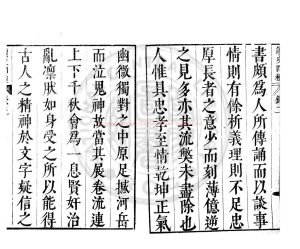 書頗爲人所傳誦而以談事
情則有餘析義理則不足忠
厚長者之意少而刻薄億逆
之見多亦其流獘未盡除也
人惟具忠孝至情乾坤正氣
幽微獨對之中原足撼河岳
而泣鬼神故當其展卷流連
上下千秋會爲一息賢奸治
亂凛肰如身受之所以能得
古人之精神於文字疑信之